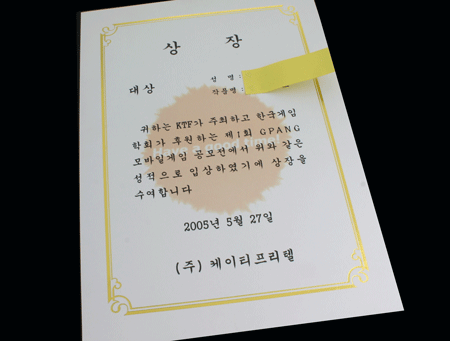 상 장
대상
성 명 :
작품명 :
귀하는 KTF가 주최하고 한국게임
학회가 후원하는 제1회 GPANG
모바일게임 공모전에서 위와 같은
성적으로 입상하였기에 상장을
수여합니다
2005년 5월 27일
(주) 케이티프리텔